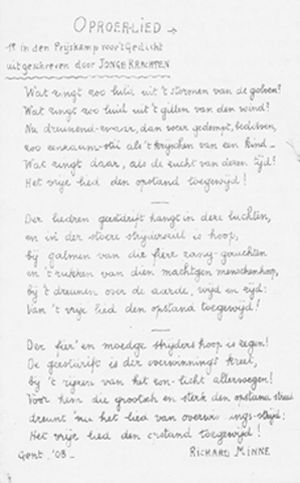 OPROERLIED
1e in den Prijskamp voor 't Gedicht
uitgeschreven door JONGE KRACHTEN
Wat zingt zoo luid uit 't stormen van de golven?
Wat zingt zoo luid uit 't gillen van den wind?
Nu dreunend-zwaar, dan weer gedempt, bedolven,
zoo eenzaam-stil als 't krijschen van een kind_
Wat zingt daar, als de zucht van deren tijd?
Het vrije lied den opstand toegewijd!
Der liedren geestdrift hangt in deze luchten,
en in der stoere strijdersziel is hoop,
bij galmen van die fiere zang-geruchten
en 't rukken van dien machtgen menschenhoop,
bij 't dreunen over de aarde, wijd en zijd:
Van 't vrije lied den opstand toegewijd!
Der fier' en moedge strijders hoop is zegen!
De geestdrift is der overwinnings kreet,
bij 't rijzen van het licht allerwegen!
Voor hem die grootsch en sterk den opstand
dreunt nu het lied van strijd:
Het vrije lied den opstand toegewijd!
Gent. '08_ RICHARD MINNE